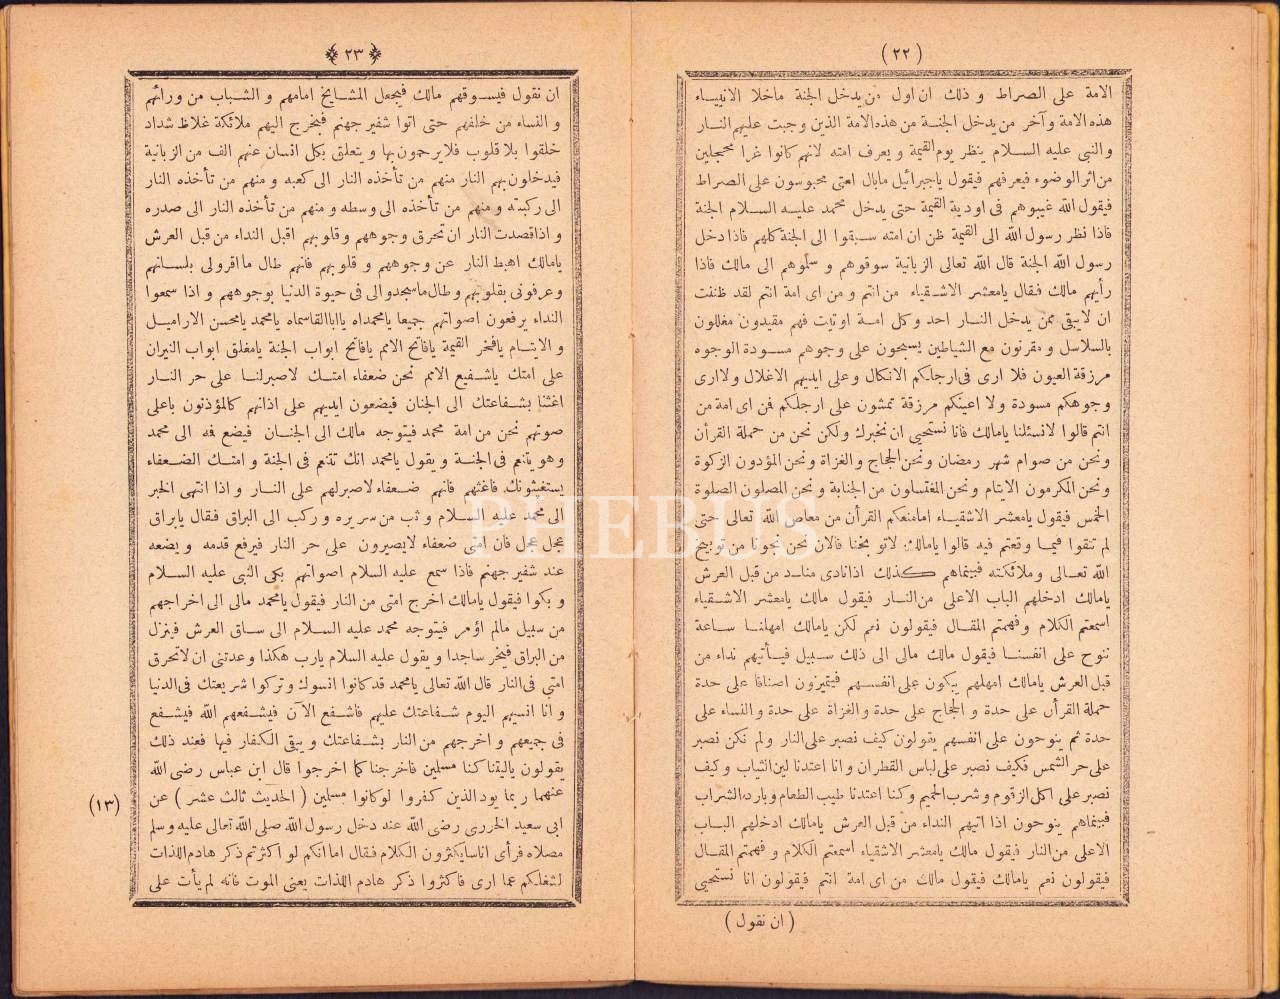 ( ٢٢ )
الامة على الصراط و ذلك ان اول من يدخل الجنة ماخلا الانبياء
هذه الامة وآخر من يدخل الجنة من هذه الامة الذين وجبت عليهم النار
والنبى عليه السلام ينظر يوم القيمة و يعرف امته لانهم كانوا غرا محجلين
من اثر الوضوء فيعرفهم فيقول ياجبرائيل مابال امتى محبوسون على الصراط
فيقول الله غيبوهم فى اودية القيمة حتى يدخل محمد عليه السلام الجنة
فاذا نظر رسول الله الى القيمة ظن ان امته سبقوا الى الجنة كلهم فاذا دخل
رسول الله الجنة قال الله تعالى الزبانية سوقوهم و سلموهم الى مالك فاذا
رأيهم مالك فقال يامعشر الاشقياء من انتم و من اى امة انتم لقد ظننت
ان لايبقى ممن يدخل النار احد وكل امة اوتيت فهم مقيدون مغللون
بالسلاسل و مقرنون مع الشياطين يسبحون على وجوهم مسودة الوجوه
مرزقة العيون فلا ارى فى ارجلكم الانكال وعلى ايديهم الاغلال ولاارى
وجوهكم مسودة ولا اعينكم مرزقة تمشون على ارجلكم فمن اى امة من
انتم قالوا لانسئلنا يامالك فانا نستحيى ان نخبرك ولكن نحن من حملة القرأن
ونحن من صوام شهر رمضان ونحن الحجاج والغزاة ونحن المؤدون الزكوة
ونحن المكرمون الايتام ونحن المغتسلون من الجنابة و نحن المصلون الصلوة
الخمس فيقول يامعشر الاشقياء امامنعكم القرأن من معاصى الله تعالى حتى
لم تنقوا فيما وقعتم فيه قالوا يامالك لاتو بخنا فالان نحن نجونا من توبيخ
الله تعالى وملائكته فبينماهم كذلك اذانادى مناد من قبل العرش
يامالك ادخلهم الباب الاعلى من النار فيقول مالك يامعشر الاشقياء
اسمعتم الكلام و فهمتم المقال فيقولون نعم لكن يامالك امهلنا ساعة
ننوح على انفسنا فيقول مالك مالى الى ذلك سبيل فيأتيهم نداء من
قبل العرش يامالك امهلهم يبكون على انفسهم فيتميزون اصنافا على حدة
حملة القرأن على حدة و الحجاج على حدة والغزاة على حدة والنساء على
حدة ثم ينوحون على انفسهم يقولون كيف نصبر على النار ولم نكن نصبر
على حر الشمس فكيف نصبر على لباس القطران و انا اعتدنا لين الثياب و كيف
نصبر على اكل الزقوم و شرب الحميم وكنا اعتدنا طيب الطعام وبارد الشراب
فبينماهم ينوحون اذا اتيهم النداء من قبل العرش يامالك ادخلهم الباب
الاعلى من النار فيقول مالك يامعشر الاشقياء اسمعتم الكلام و فهمتم المقال
فيقولون نعم يامالك فيقول مالك من اى امة انتم فيقولون انا نستحيى
( ان نقول )
٢٣
ان نقول فيسوقهم مالك فيجعل المشايخ امامهم و الشباب من ورائهم
و النساء من خلفهم حتى اتوا شفير جهنم فيخرج اليهم ملائكة غلاظ شداد
خلقوا بلا قلوب فلايرحمون بها و يتعلق بكل انسان عنهم الف من الزبانية
فيدخلون بهم النار منهم من تأخذه النار الى كعبه و منهم من تأخذه النار
الى ركبته و منهم من تأخذه الى وسطه و منهم من تأخذه النار الى صدره
و اذاقصدت النار ان تحرق وجوههم و قلوبهم اقبل النداء من قبل العرش
يامالك اهبط النار عن وجوههم و قلوبهم فانهم طال مااقرولى بلسانهم
وعرفونى بقلوبهم و طال ماسجدوالى فى حيوة الدنيا بوجوههم و اذا سمعوا
النداء يرفعون اصواتهم جميعا يامحمداه يااباالقاسماه يامحمد يامحسن الاراميل
و الايتام يافخر القيمة يافاتح الامم يافاتح ابواب الجنة يامغلق ابواب النيران
على امتك ياشفيع الامم نحن ضعفاء امتك لاصبرلنا على حر النار
اغثنا بشفاعتك الى الجنان فيضعون ايديهم على اذانهم كالمؤذنون باعلى
صوتهم نحن من امة محمد فيتوجه مالك الى الجنان فيضع فه الى محمد
وهو يتنعم فى الجنة و يقول يامحمد انك تتنعم فى الجنة و امتك الضعفاء
يستغيثونك فاغثهم فانهم ضعفاء لاصبرلهم على النار و اذا انتهى الخبر
الى محمد عليه السلام و ثب من سريره و ركب الى البراق فقال يابراق
عجل عجل فان امتى ضعفاء لايصبرون على حر النار فيرفع قدمه و يضعه
عند شفير جهنم فاذا سمع عليه السلام اصواتهم بكى النبى عليه السلام
و بكوا فيقول يامالك اخرج امتى من النار فيقول يامحمد مالى الى اخراجهم
من سبيل مالم اؤمر فيتوجه محمد عليه السلام الى ساق العرش فينزل
من البراق فيخر ساجدا و يقول عليه السلام يارب هكذا وعدتنى ان لاتحرق
امتى فى النار قال الله تعالى يامحمد قد كانوا انسوك وتركوا شريعتك فى الدنيا
و انا انسيهم اليوم شفاعتك عليهم فاشفع الآن فيشفعهم الله فيشفع
فى جميعهم و اخرجهم من النار بشفاعتك و يبقى الكفار فيها فعند ذلك
يقولون ياليقنا كنا مسلمين فاخرجنا كما اخرجوا قال ابن عباس رضى الله
عنهما ربما يود الذين كفروا لوكانوا مسلمين ( الحديث ثالث عشر ) عن
(١٣)
ابى سعيد الخدرى رضى الله عند دخل رسول الله صلى الله تعالى عليه وسلم
مصلاه فرأى اناسايكثرون الكلام فقال اما انكم لو اكثرتم ذكر هادم اللذات
لشغلكم عما ارى فاكثروا ذكر هادم اللذات يعنى الموت فانه لم يأت على
PHEBUS